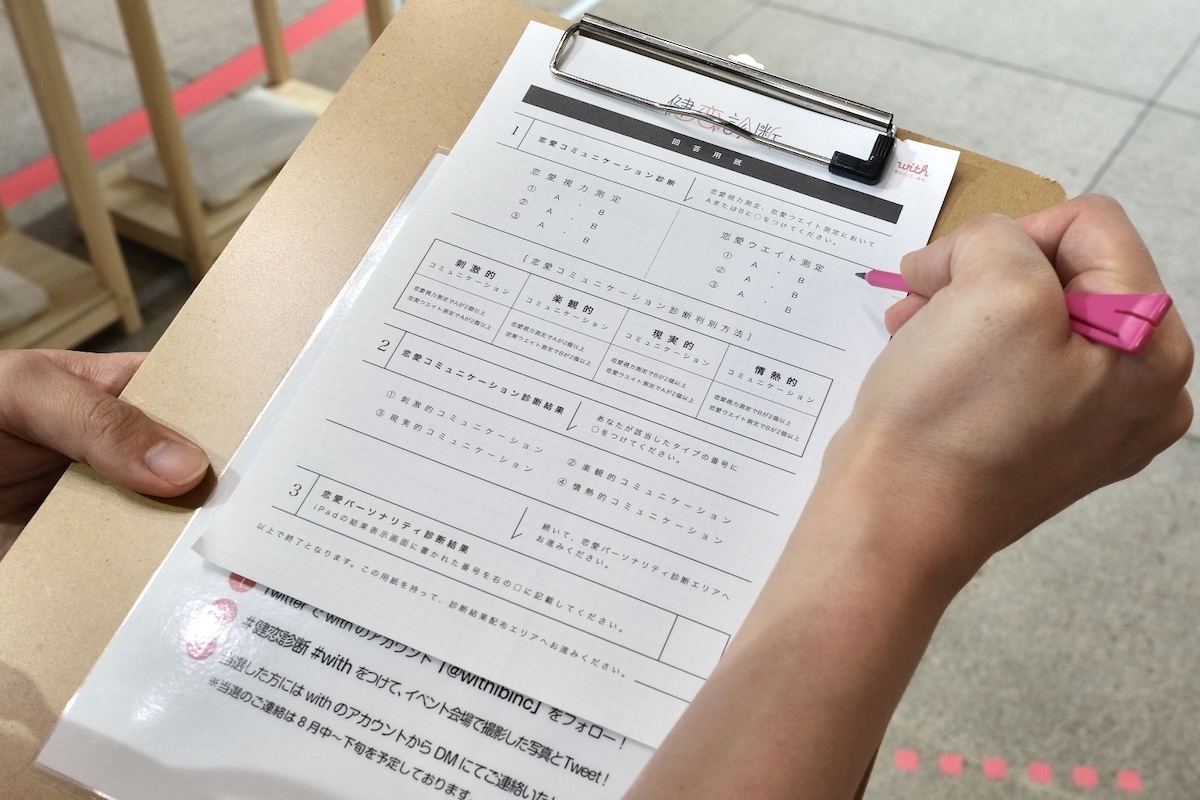 健恋診断
with
回答用紙
1 恋愛コミュニケーション診断
恋愛視力測定、恋愛ウエイト測定において
AまたはBに○をつけてください。
恋愛視力測定
① A ・ B
② A ・ B
③ A ・ B
恋愛ウエイト測定
① A ・ B
② A ・ B
③ A ・ B
[恋愛コミュニケーション診断判別方法]
刺激的
コミュニケーション
恋愛視力測定でAが2個以上
恋愛ウエイト測定でAが2個以上
楽観的
コミュニケーション
恋愛視力測定でAが2個以上
恋愛ウエイト測定でBが2個以上
現実的
コミュニケーション
恋愛視力測定でBが2個以上
恋愛ウエイト測定でAが2個以上
情熱的
コミュニケーション
恋愛視力測定でBが2個以上
恋愛ウエイト測定でBが2個以上
2 恋愛コミュニケーション診断結果
あなたが該当したタイプの番号に
○をつけてください。
① 刺激的コミュニケーション
② 楽観的コミュニケーション
③ 現実的コミュニケーション
④ 情熱的コミュニケーション
3 恋愛パーソナリティ診断結果
続いて、恋愛パーソナリティ診断エリアへ
お進みください。
iPadの結果表示画面に書かれた番号を右の□に記載してください。
以上で終了となります。この用紙を持って、診断結果配布エリアへお進みください。
Twitterでwithのアカウント「@withibinc」をフォロー！
#健恋診断 #with をつけて、イベント会場で撮影した写真とTweet！
当選した方には with のアカウントから DM にてご連絡いた
※当選のご連絡は8月中〜下旬を予定しております。